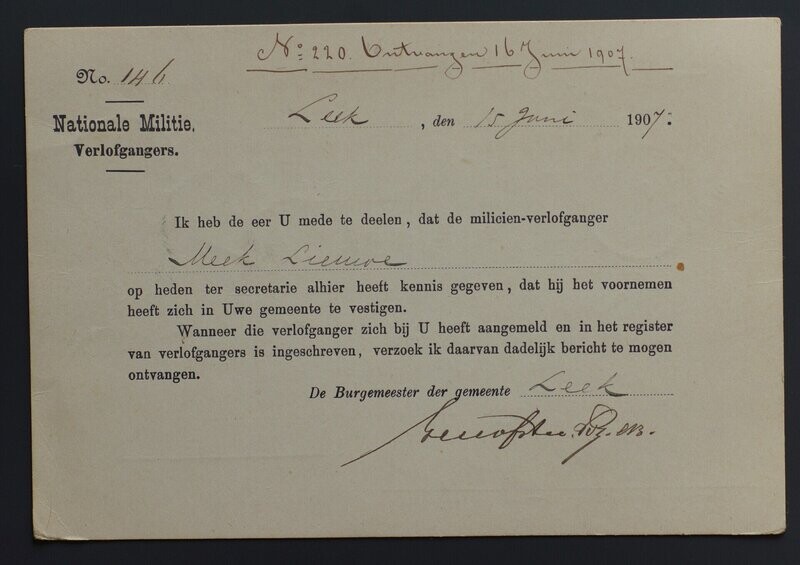 No. 220. Ontvangen 16 Juni 1907.
No. 146
Leek, den 15 Juni 1907.
Nationale Militie,
Verlofgangers.
Ik heb de eer U mede te deelen, dat de milicien-verlofganger
Meek Lieuwe
op heden ter secretarie alhier heeft kennis gegeven, dat hij het voornemen
heeft zich in Uwe gemeente te vestigen.
Wanneer die verlofganger zich bij U heeft aangemeld en in het register
van verlofgangers is ingeschreven, verzoek ik daarvan dadelijk bericht te mogen
ontvangen.
De Burgemeester der gemeente Leek